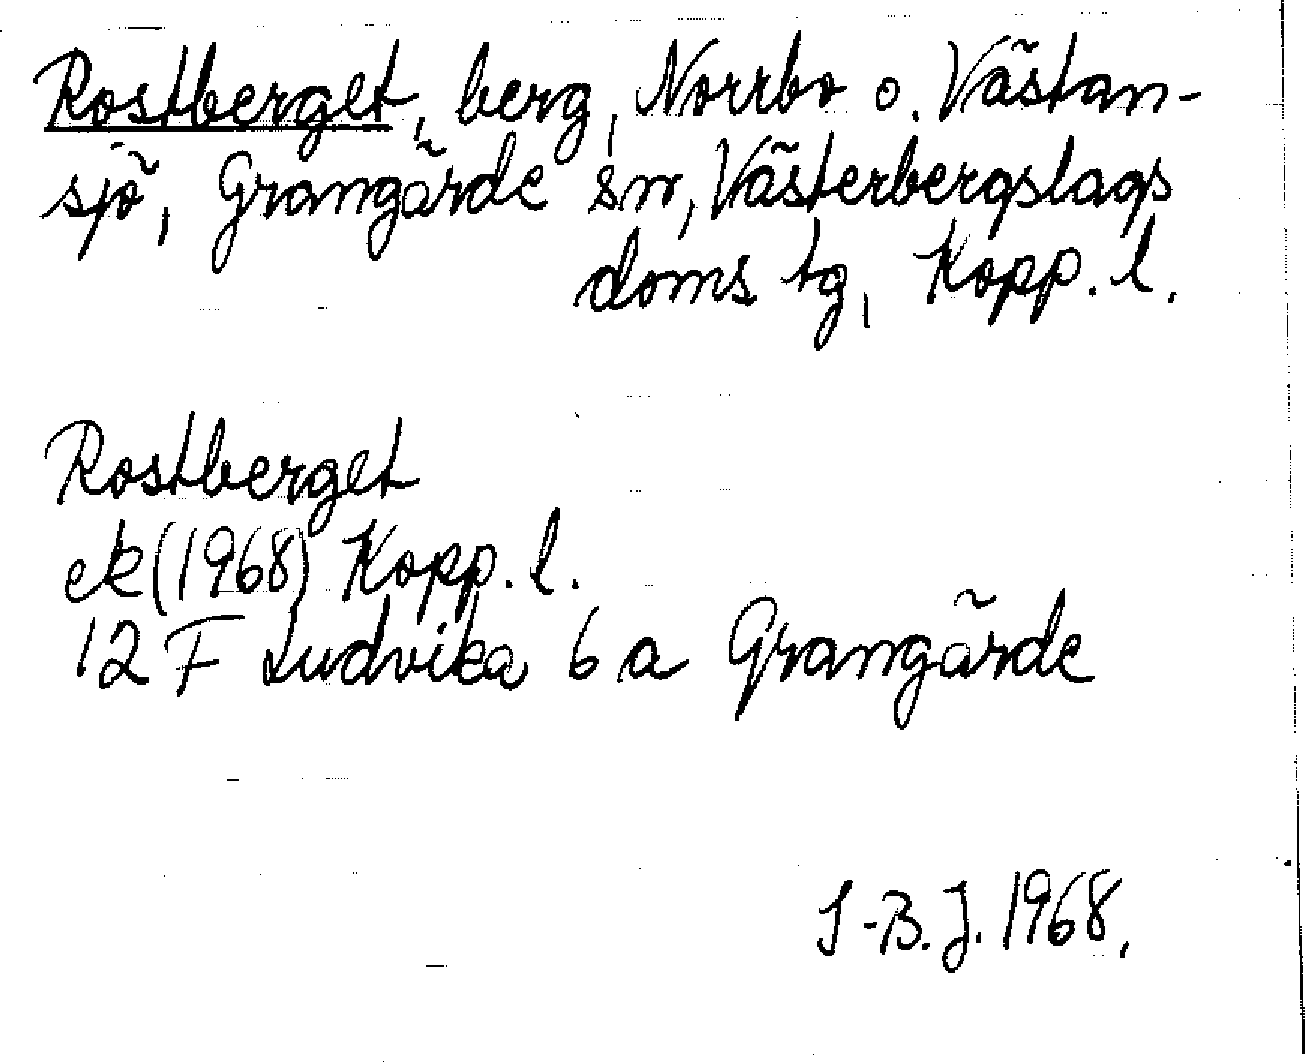 Rostberget, berg, Norrbo o. Västan-
sjö, Grangärde sn, Västerbergslags
doms tg, Kopp. l.
Rostberget
ek (1968) Kopp. l.
12 F Ludvika 6 a Grangärde
I-B. J. 1968.